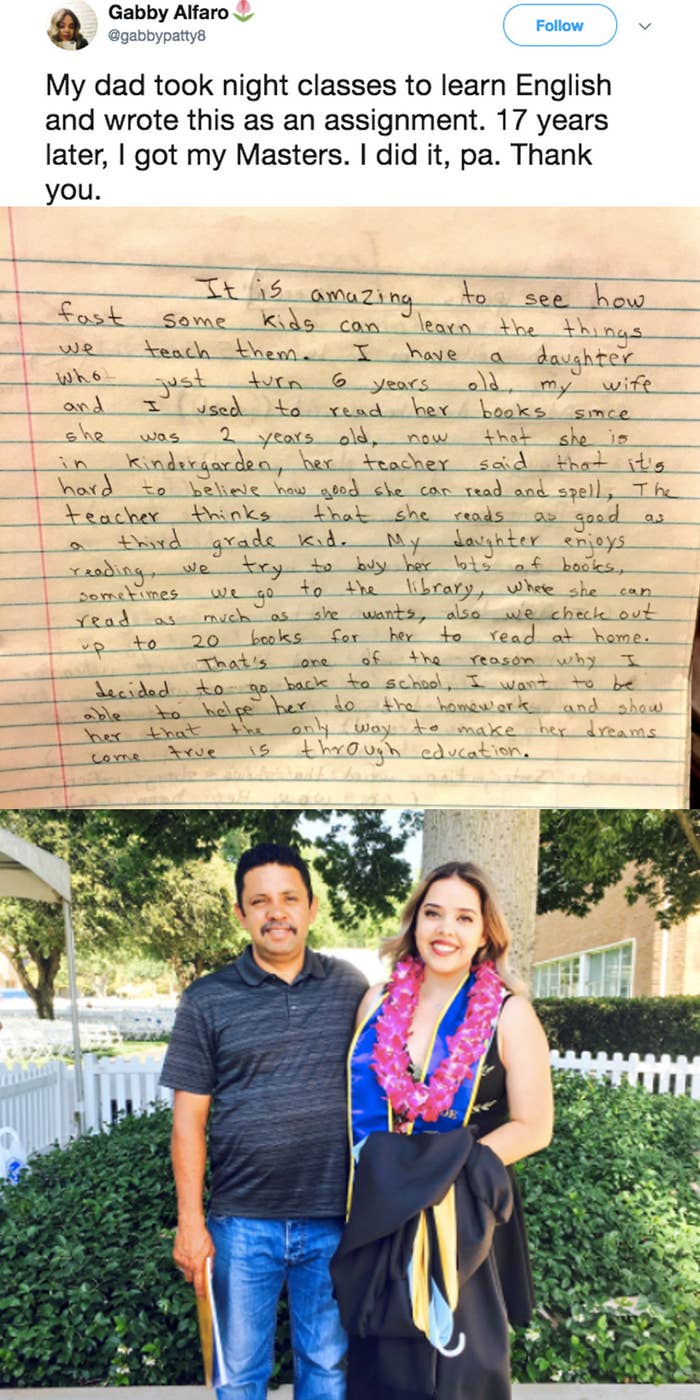 Gabby Alfaro🌷
@gabbypatty8
Follow
My dad took night classes to learn English
and wrote this as an assignment. 17 years
later, I got my Masters. I did it, pa. Thank
you.
It is amazing to see how
fast some kids can learn the things
we teach them. I have a daughter
who just turn 6 years old, my wife
and I used to read her books since
she was 2 years old, now that she is
in kindergarden, her teacher said that it's
hard to believe how good she can read and spell, The
teacher thinks that she reads as good as
a third grade kid. My daughter enjoys
reading, we try to buy her lots of books,
sometimes we go to the library, where she can
read as much as she wants, also we check out
up to 20 books for her to read at home.
That's one of the reason why I
decided to go back to school, I want to be
able to helpe her do the homework and show
her that the only way to make her dreams
come true is through education.